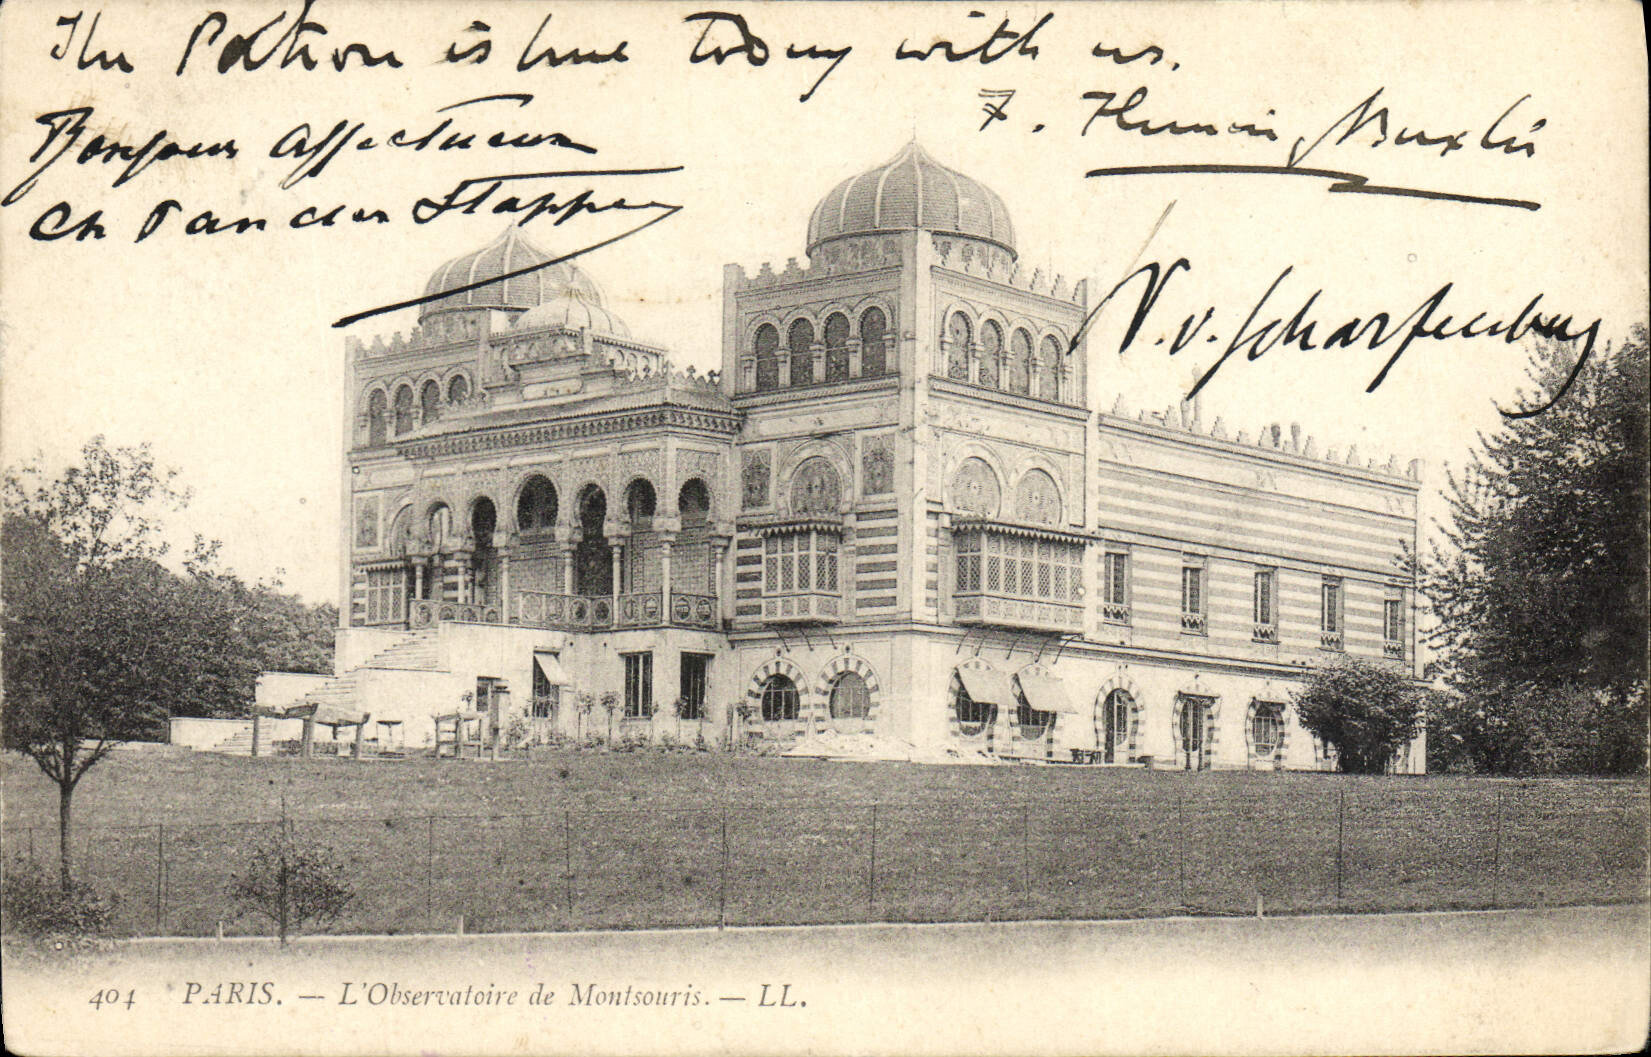 The Patron is here today with us.
Bonjour affectueux
Ch Van der Stappen
F.
W. v. Scharfenberg
404 PARIS. — L'Observatoire de Montsouris. — LL.